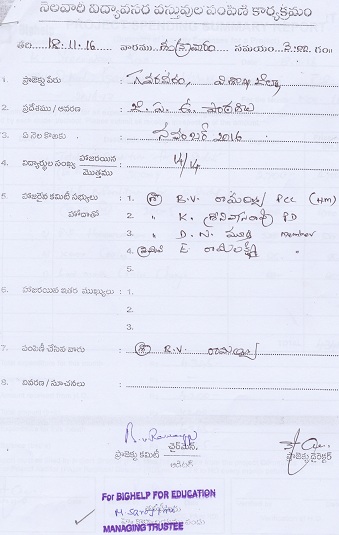 నెలవారీ విద్యావసర వస్తువుల పంపిణీ కార్యక్రమం
తేది. 18.11.16 వారము శుక్రవారం సమయం 3:00 గం॥
1. ప్రాజెక్టు పేరు : నవరవీదం, విశాఖ జిల్లా,
2. ప్రదేశము / ఆవరణ : జి. ప. ఉ. పాఠశాల
3. ఏ నెల కొఱకు : నవంబర్ 2016
4. విద్యార్థుల సంఖ్య హాజరయిన / మొత్తము : 14/14
5. హాజరైన కమిటీ సభ్యులు : 1. శ్రీ B.V. రామయ్య / PCC (HM)
హోదాతో 2. " K. శ్రీనివాసరావు PD
3. " D.N. మూర్తి member
4. శ్రీమతి E
5.
6. హాజరయిన ఇతర ముఖ్యులు : 1.
2.
3.
7. పంపిణీ చేసిన వారు : శ్రీ B.V. రామయ్య
8. వివరణ / సూచనలు :
ప్రాజెక్టు కమిటీ చైర్మెన్, / ఆడిటర్ ప్రాజెక్టు డైరెక్టర్
For BIGHELP FOR EDUCATION
MANAGING TRUSTEE